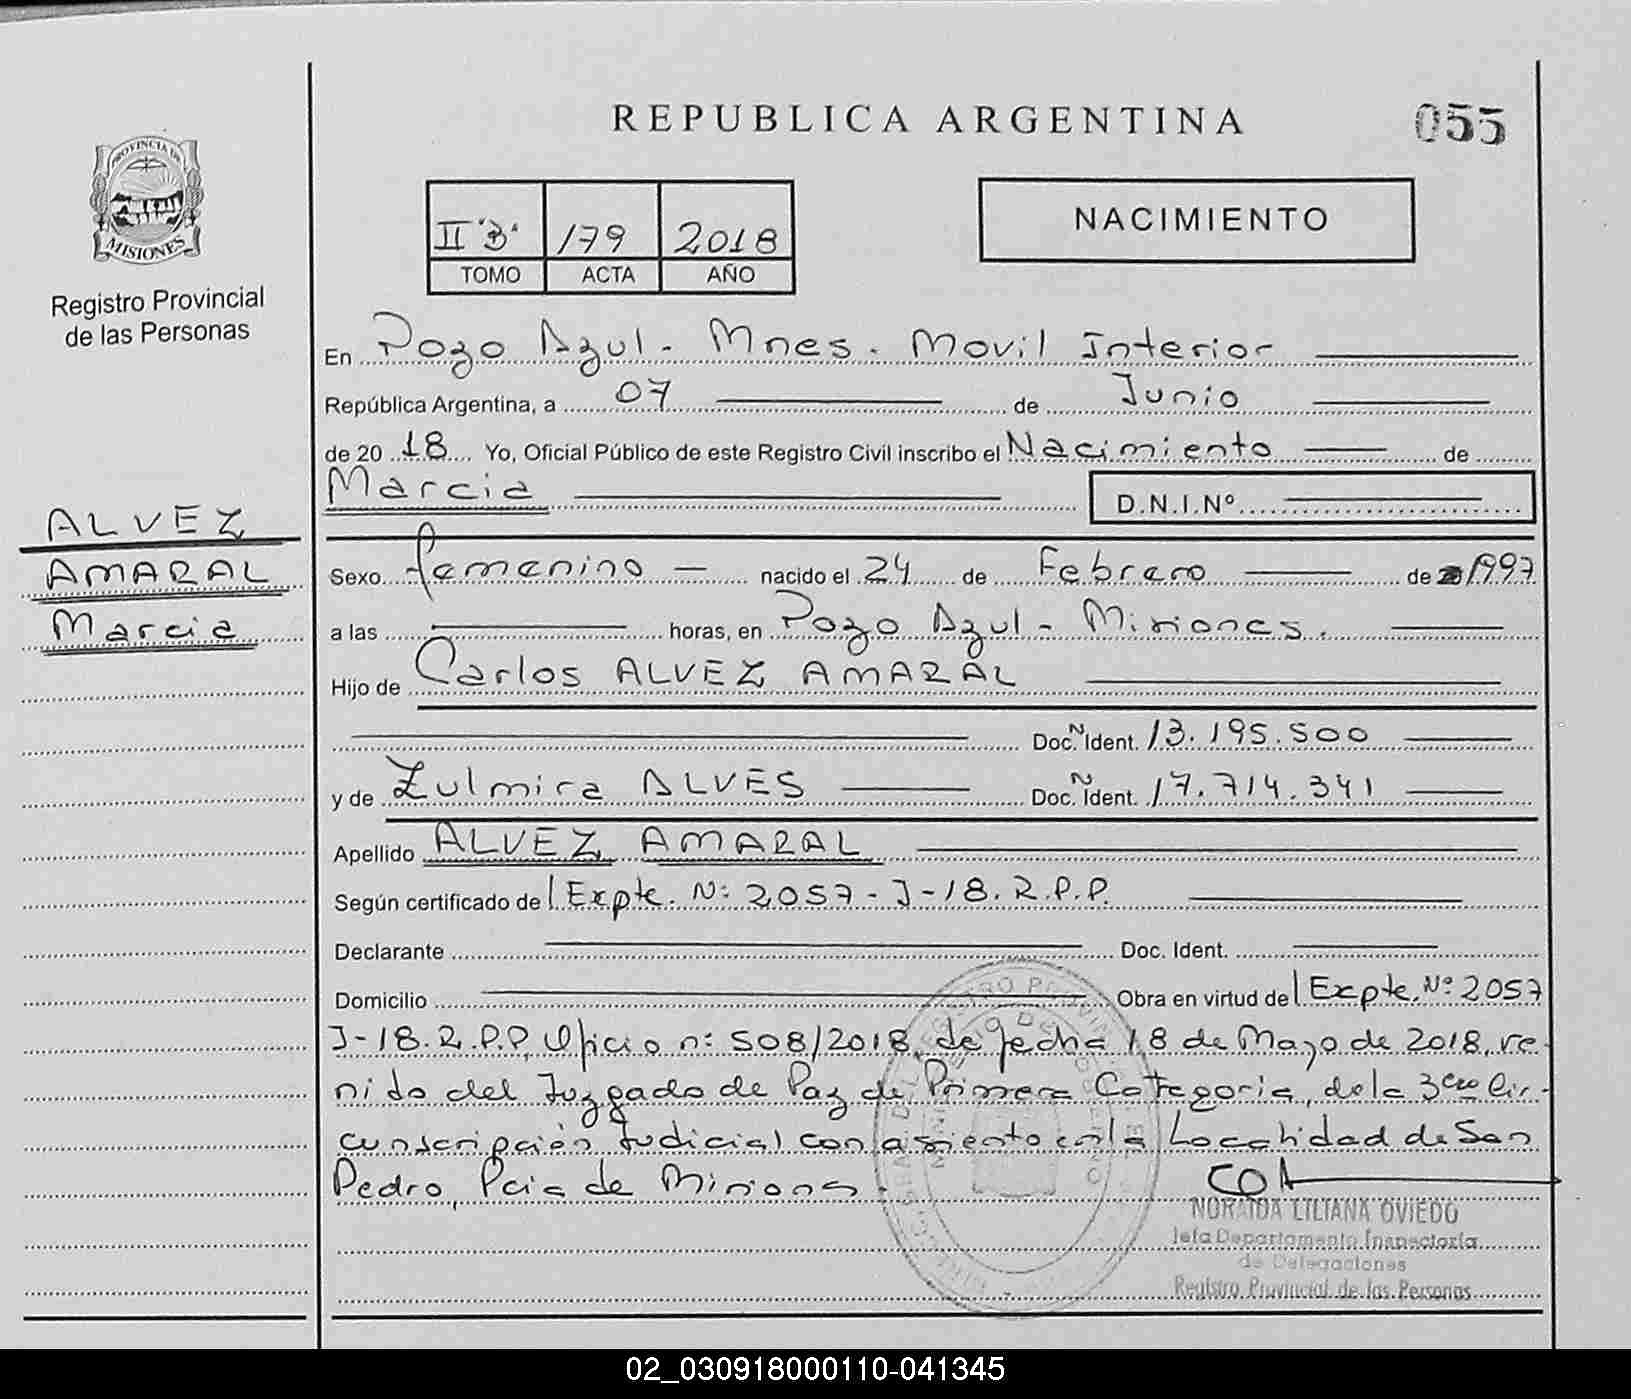 REPUBLICA ARGENTINA
055
PROVINCIA DE
MISIONES
Registro Provincial
de las Personas
II "B" 179 2018
TOMO ACTA AÑO
NACIMIENTO
En Pozo Azul - Mnes. Movil Interior
República Argentina, a 07 de Junio
de 20 18 Yo, Oficial Público de este Registro Civil inscribo el Nacimiento de
Marcia D.N.I.Nº
ALVEZ
AMARAL
Marcia
Sexo femenino nacido el 24 de Febrero de 1997
a las horas, en Pozo Azul - Misiones.
Hijo de Carlos ALVEZ AMARAL
Doc. Ident. Nº 13.195.500
y de Zulmira ALVES Doc. Ident. Nº 17.714.341
Apellido ALVEZ AMARAL
Según certificado de Expte. Nº 2057-J-18.R.P.P.
Declarante Doc. Ident.
Domicilio Obra en virtud de Expte. Nº 2057
J-18.R.P.P, Oficio nº 508/2018, de fecha 18 de Mayo de 2018, ve-
nido del Juzgado de Paz de Primera Categoria, de la 3era Cir-
cunscripción Judicial con asiento en la Localidad de San
Pedro, Pcia de Misiones.
NORAIDA LILIANA OVIEDO
Jefa Departamento Inspectoría
de Delegaciones
Registro Provincial de las Personas
02_030918000110-041345